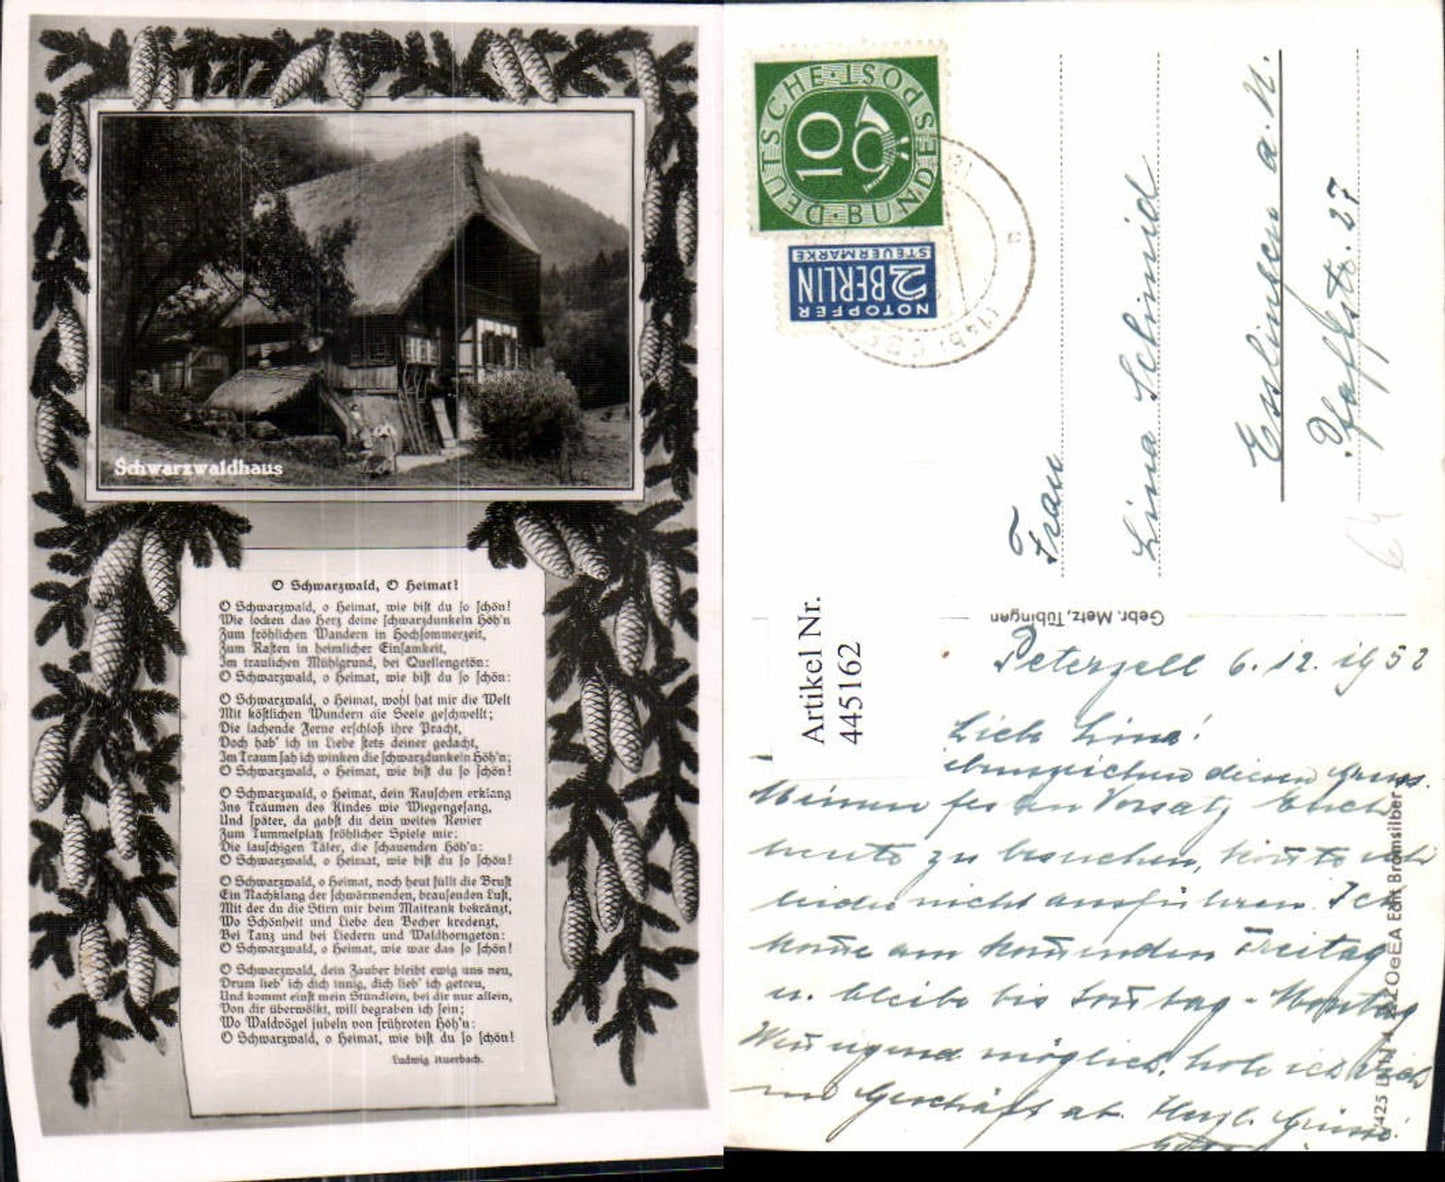 Schwarzwaldhaus
O Schwarzwald, O Heimat!
O Schwarzwald, o Heimat, wie bist du so schön!
Wie locken das Herz deine schwarzdunkeln Höh'n
Zum fröhlichen Wandern in Hochsommerzeit,
Zum Rasten in heimlicher Einsamkeit,
Im traulichen Mühlgrund, bei Quellengetön:
O Schwarzwald, o Heimat, wie bist du so schön:
O Schwarzwald, o Heimat, wohl hat mir die Welt
Mit köstlichen Wundern die Seele geschwellt;
Die lachende Ferne erschloß ihre Pracht,
Doch hab' ich in Liebe stets deiner gedacht,
Im Traum sah ich winken die schwarzdunkeln Höh'n;
O Schwarzwald, o Heimat, wie bist du so schön!
O Schwarzwald, o Heimat, dein Rauschen erklang
Ins Träumen des Kindes wie Wiegengesang,
Und später, da gabst du dein weites Revier
Zum Tummelplatz fröhlicher Spiele mir;
Die lauschigen Täler, die schauenden Höh'n:
O Schwarzwald, o Heimat, wie bist du so schön!
O Schwarzwald, o Heimat, noch heut füllt die Brust
Ein Nachklang der schwärmenden, brausenden Lust,
Mit der du die Stirn mir beim Maitrank bekränzt,
Wo Schönheit und Liebe den Becher kredenzt,
Bei Tanz und bei Liedern und Waldhorngetön:
O Schwarzwald, o Heimat, wie war das so schön!
O Schwarzwald, dein Zauber bleibt ewig uns neu,
Drum lieb' ich dich innig, dich lieb' ich getreu,
Und kommt einst mein Stündlein, bei dir nur allein,
Von dir überwölkt, will begraben ich sein;
Wo Waldvögel jubeln von frühroten Höh'n:
O Schwarzwald, o Heimat, wie bist du so schön!
Ludwig Auerbach.
DEUTSCHE · BUNDESPOST
10
NOTOPFER
2 BERLIN
STEUERMARKE
Frau
Lina Schmid
Esslingen a. N.
Pfaffstr. 27
Gebr. Metz, Tübingen
Artikel Nr.
445162
Peterzell 6.12.1952
Liebe Lina!
diesen Gruss.
Meinen Vorsatz Euch
heute zu besuchen, konnte ich
leider nicht ausführen. Ich
komme am kommenden Freitag
u. bleibe bis Sonntag - Montag
Wenn irgend möglich, hole ich Dich
im Geschäft ab. Herzl. Grüsse!
Echt Bromsilber